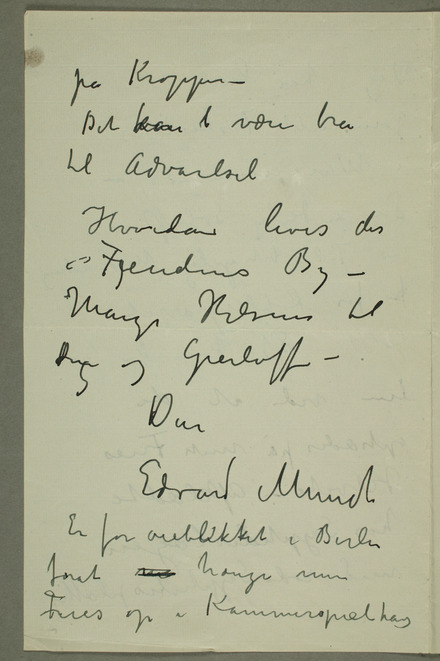 på Kroppen –
Det kan være bra
til Advarelsel
Hvordan leves der
i Fjendens By –
Mange Hilsener til
Dig og Gierløff –
Din
Edvard Munch
Er for øieblikket i Berlin
forat hænge min
Fries op i Kammerspielhaus